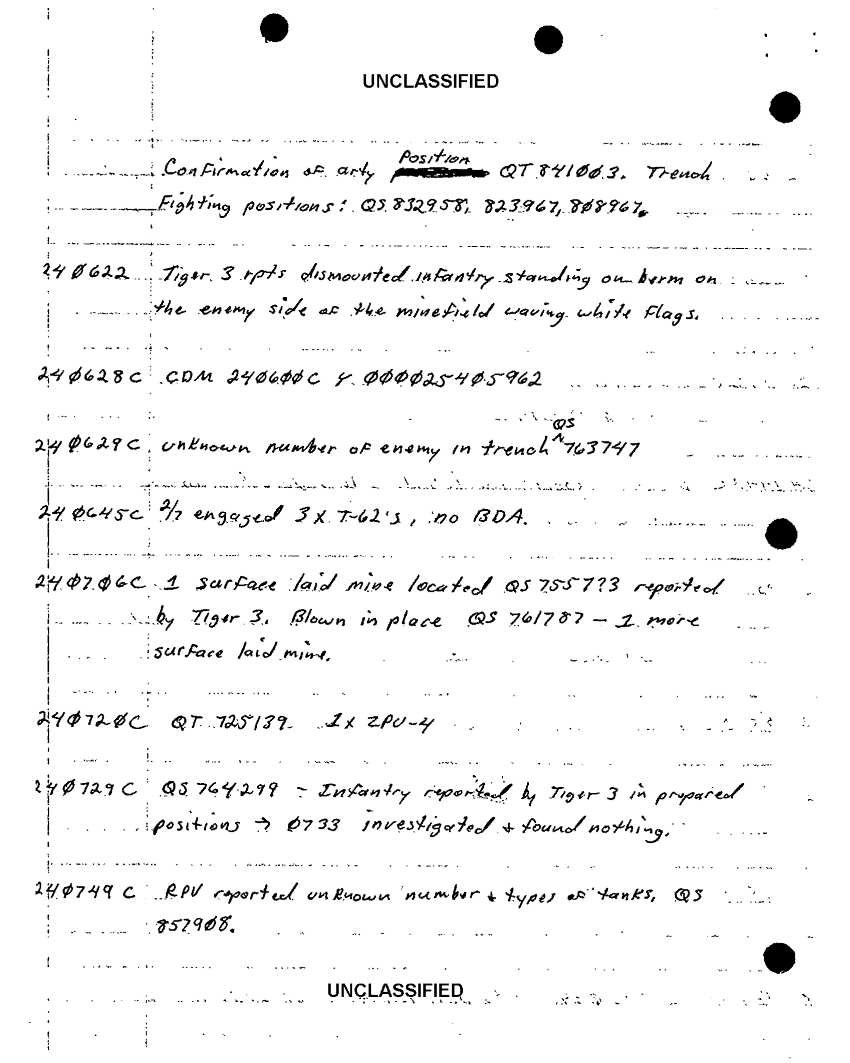 UNCLASSIFIED
Position
Confirmation of arty QT 841003. Trench
Fighting positions: QS 832958, 823967, 808967.
240622 Tiger 3 rpts dismounted infantry standing on berm on
the enemy side of the minefield waving white flags.
240628C CDM 240600C Y 000025405962
QS
240629C unknown number of enemy in trench ^763747
240645C 2/7 engaged 3 X T-62's, no BDA.
240706C 1 surface laid mine located QS 755773 reported
by Tiger 3. Blown in place QS 761787 - 1 more
surface laid mine.
240720C QT 725139 1X ZPU-4
240729C QS 764299 - Infantry reported by Tiger 3 in prepared
positions → 0733 investigated + found nothing.
240749C RPV reported unknown number + types of tanks, QS
857908.
UNCLASSIFIED